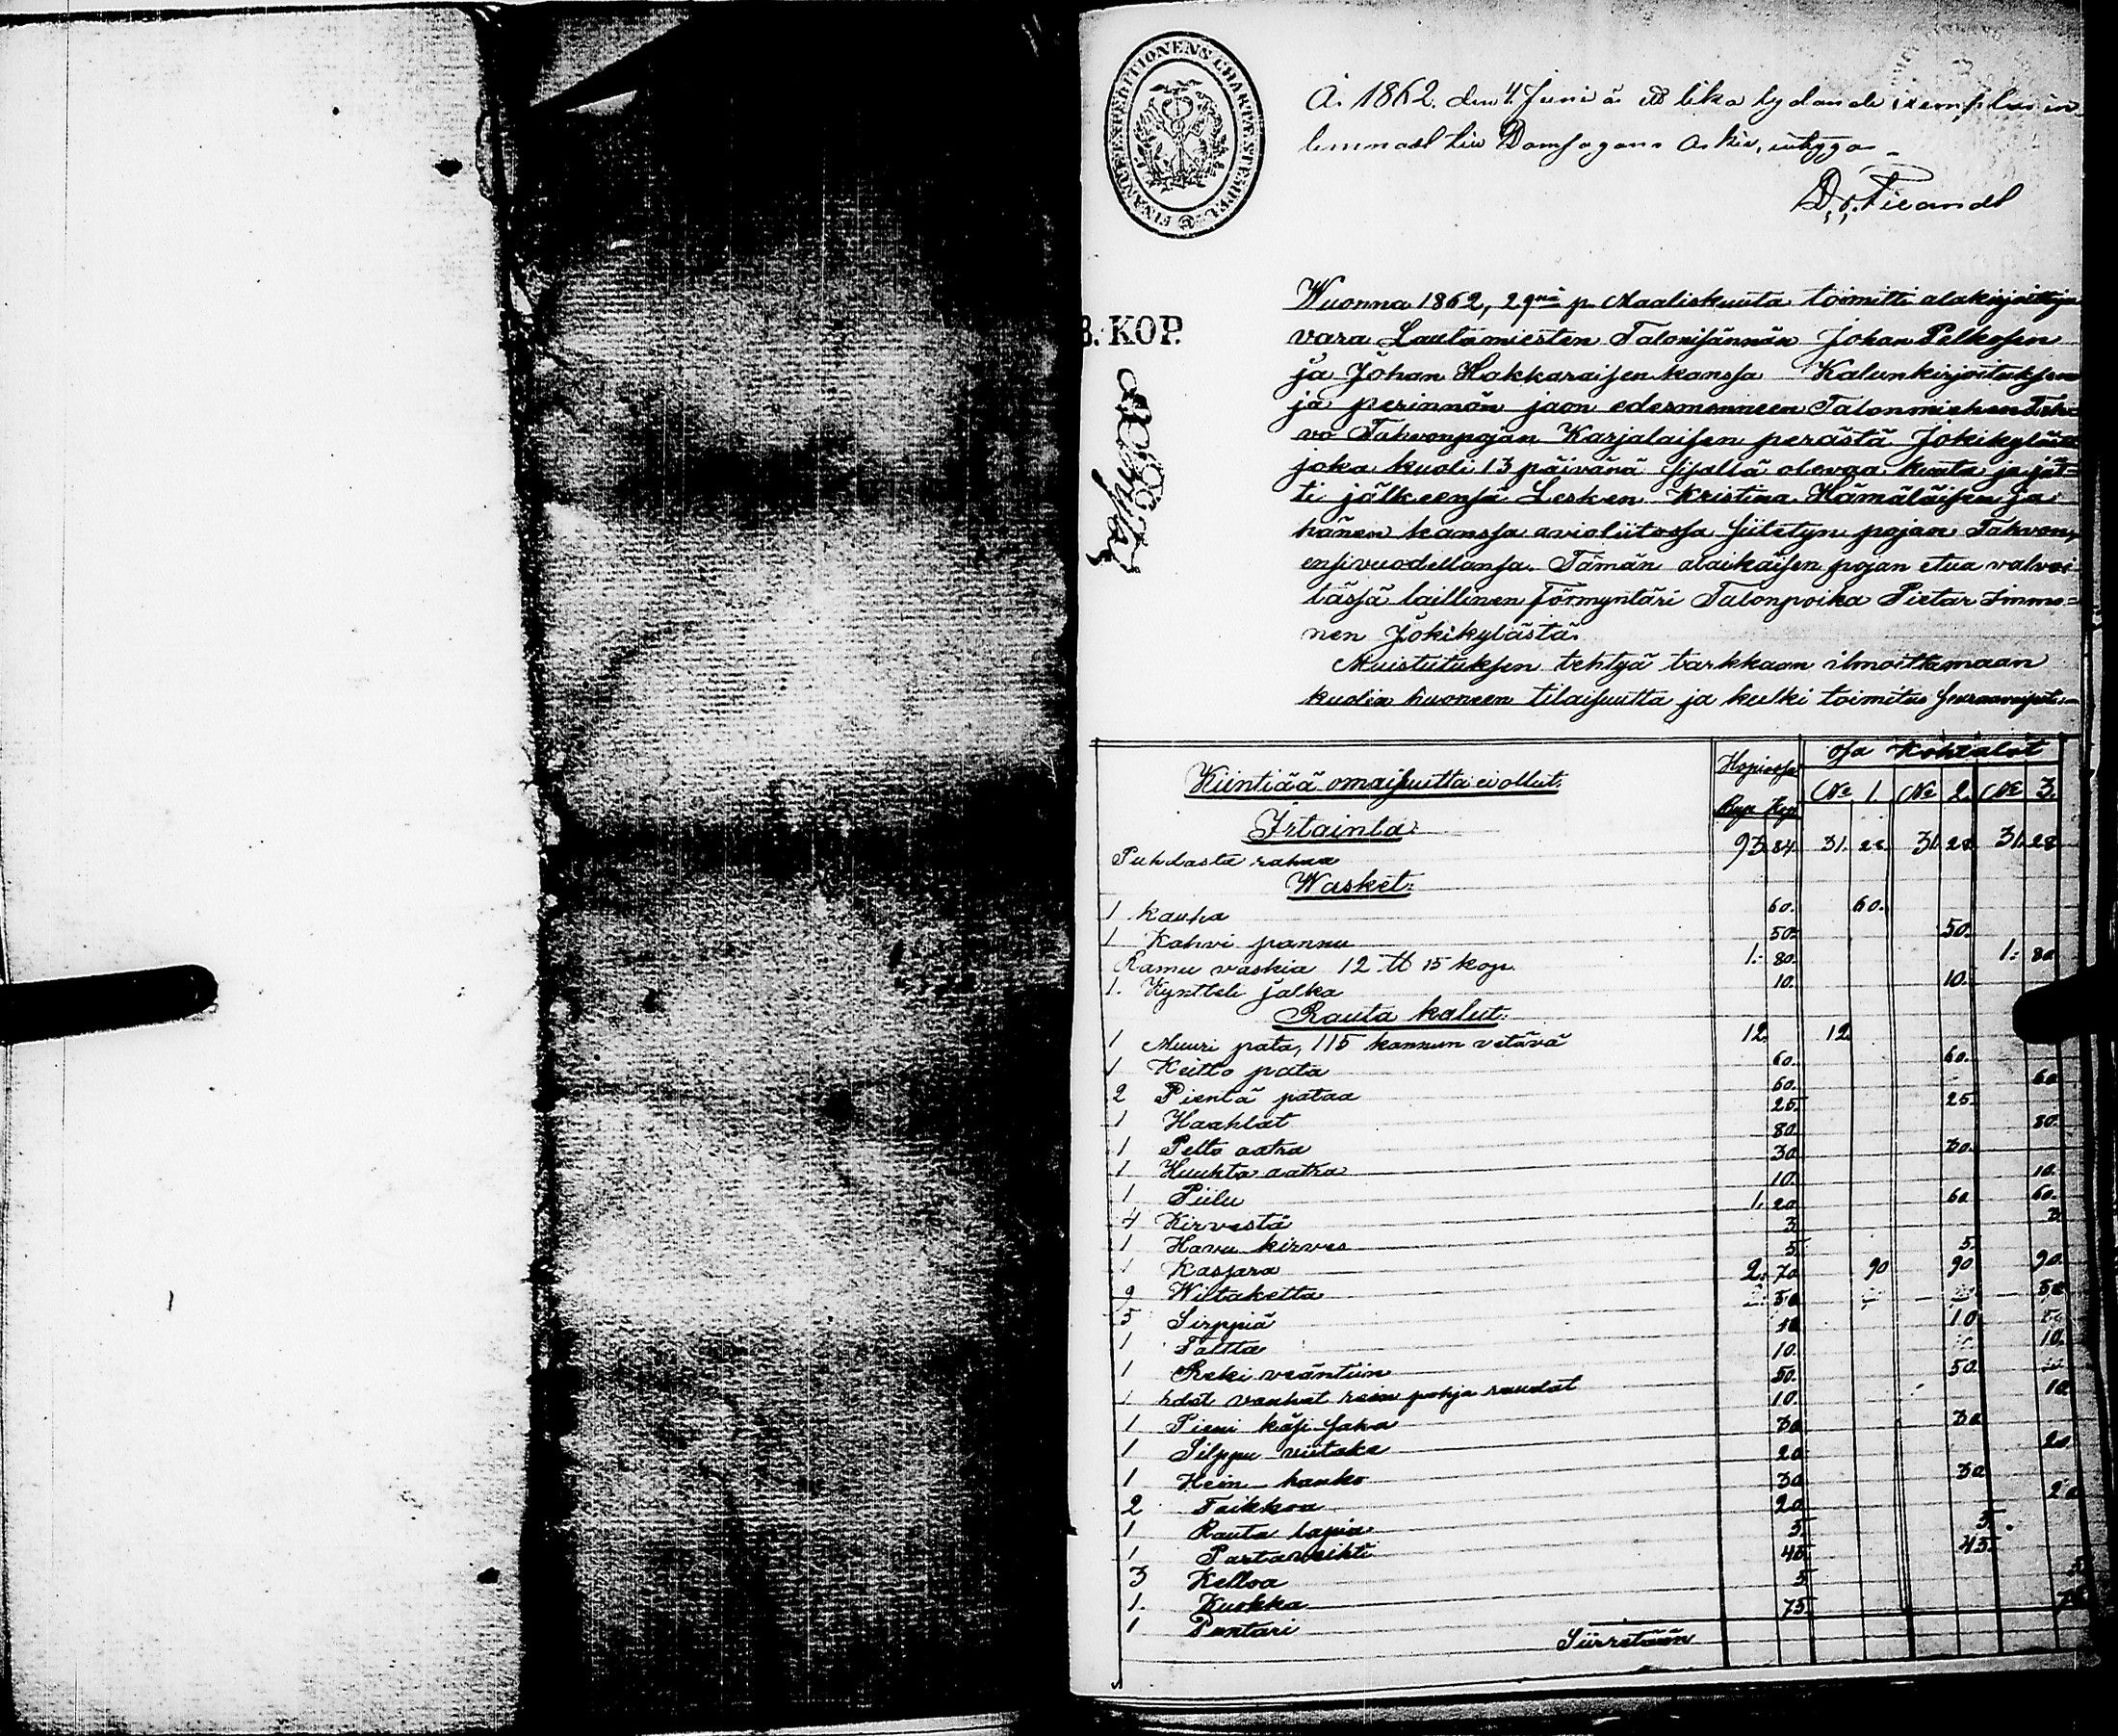 FINANCE EXPEDITIONENS CHARTÆ STEMPEL
År 1862. den 4 Juni är ett lika lydande exemplar in-
lemnadt till Domsagans Arkiv, intygar
3. KOP.
Wuonna 1862, 29nä p. Maaliskuuta toimitti alakirjoittaja
vara Lautamiesten Talonisännän Johan Pelkosen
ja Johan Hakkaraisen kanssa Kalunkirjoituksen
ja perinnön jaon edesmenneen Talonmiehen Tah-
vo Tahvonpojan Karjalaisen perästä Jokikylästä
joka kuoli 13 päivänä sisällä olevaa kuuta ja jät-
ti jälkeensä Lesken Kristina Hämäläisen ja
hänen kanssa avioliitossa siitetyn pojan Tahvon,
ensivuodellansa. Tämän alaikäisen pojan etua valvoi
läsjä laillinen Förmyntäri Talonpoika Pietar Immo-
nen Jokikylästä.
Muistutuksen tehtyä tarkkaan ilmoittamaan
kuolin huoneen tilaisuutta ja kulki toimitus
Kiintiää omaisuutta ei ollut. Hopiassa osa Kohtalot
Rup. Kop. No 1. No 2. No 3.
Irtainta:
Puhdasta rahaa 93. 84. 31. 28. 31. 28. 31. 28
Wasket:
1 Kauha 60. 60.
1 Kahvi pannu 50. 50.
Ramu vaskia 12 ℔ 15 kop. 1. 80. 1. 80
1. Kynttele jalka 10. 10.
Rauta kalut:
1 Muuri pata, 115 kannun vetävä 12. 12.
1 Keitto pata 60. 60.
2 Pientä pataa 60. 60
1 Haahlat 25. 25.
1 Pelto aatra 80. 80.
1 Huuhta aatra 30. 30.
1 Piilu 10. 10.
4 Kirvestä 1. 20. 60. 60.
1 Havu kirves 3. 3
1 Kasjara 5. 5.
9 Wiitaketta 2. 70. 90 90. 90.
5 Sirppiä 50 50
1 Taltta 10. 10.
1 Reki vääntiin 10. 10.
1 hdot vanhat reen pohja raudat 50. 50.
1 Pieni käsi saha 10. 10
1 Silppu viitake 30 30
1 Hein hanko 20 20
2 Taikkoa 30 30
1 Rauta lapia 20 20
1 Partaveihti 5. 5.
3 Kelloa 45. 45.
1. Kuokka 5 5
1 Pontari 75. 75
Siirretään